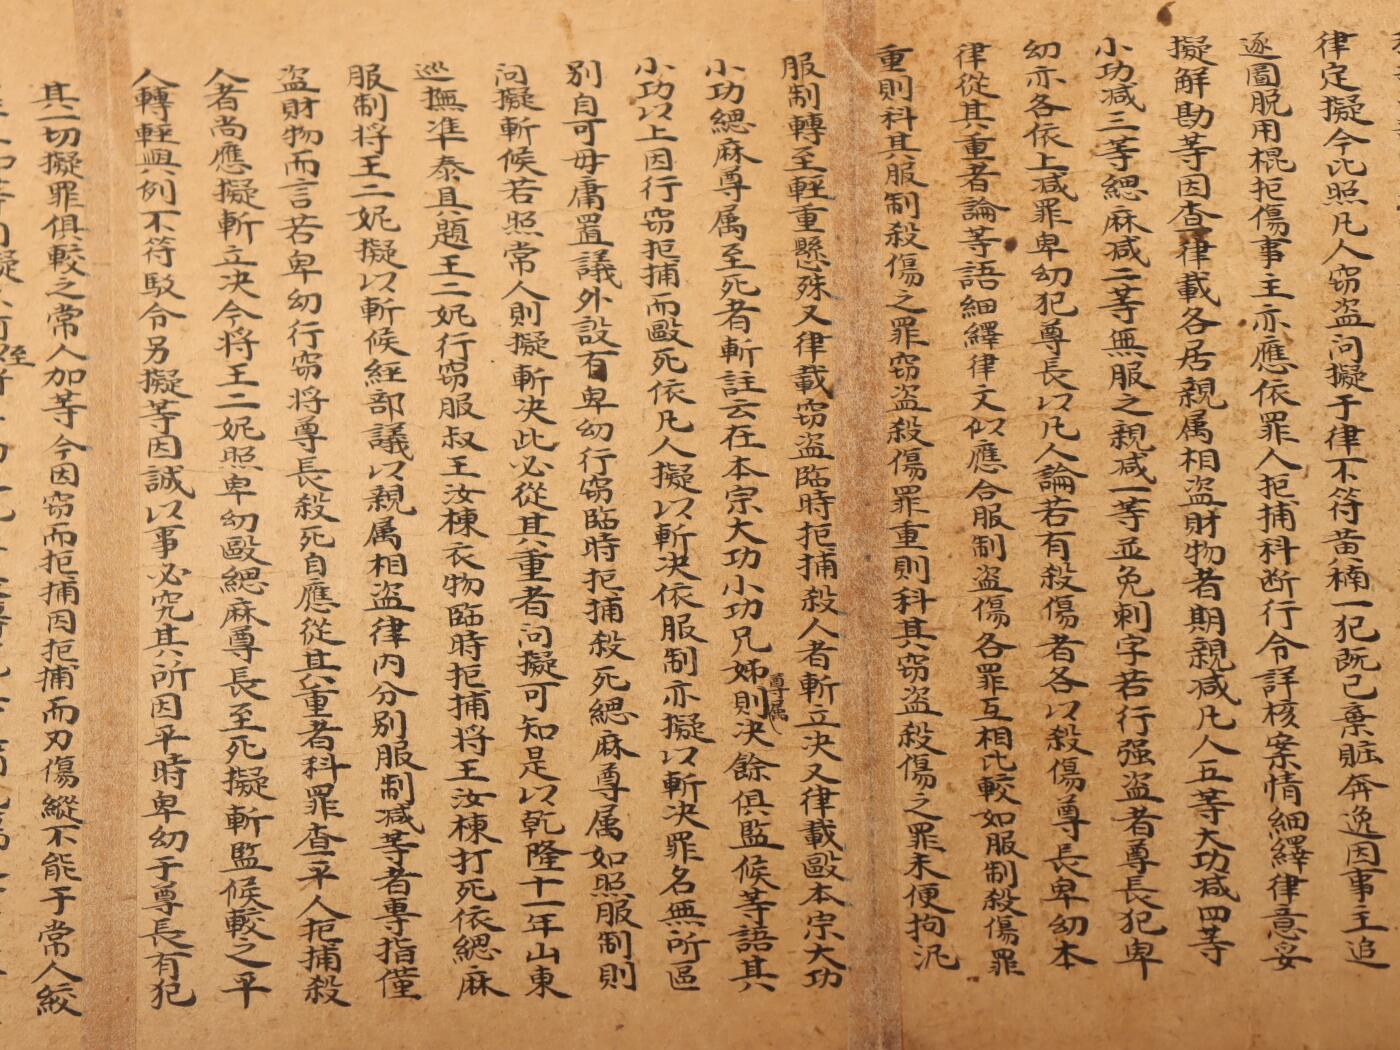 律定擬今比照凡人窃盗问擬于律不符黄楠一犯既已棄賍奔逸因事主追
逐圖脱用棍拒傷事主亦應依罪人拒捕科断行令詳核案情細繹律意妥
擬解勘等因查律載各居親属相盗財物者期親减凡人五等大功减四等
小功减三等緦麻减二等無服之親减一等並免刺字若行强盗者尊長犯卑
幼亦各依上减罪卑幼犯尊長以凡人論若有殺傷者各以殺傷尊長卑幼本
律從其重者論等語細繹律文似應合服制盗傷各罪互相比較如服制殺傷罪
重則科其服制殺傷之罪窃盗殺傷罪重則科其窃盗殺傷之罪未便拘泥
服制轉至輕重懸殊又律載窃盗臨時拒捕殺人者斬立决又律載毆本宗大功
小功緦麻尊属至死者斬註云在本宗大功小功兄姊尊属則决餘俱監候等語其
小功以上因行窃拒捕而毆死依凡人擬以斬决依服制亦擬以斬决罪名無所區
别自可毋庸置議外設有卑幼行窃臨時拒捕殺死緦麻尊属如照服制則
问擬斬候若照常人則擬斬决此必從其重者问擬可知是以乾隆十一年山東
巡撫准泰具題王二妮行窃服叔王汝棟衣物臨時拒捕將王汝棟打死依緦麻
服制将王二妮擬以斬候經部議以親属相盗律内分别服制减等者專指僅
盗財物而言若卑幼行窃将尊長殺死自應從其重者科罪查平人拒捕殺
人者尚應擬斬立决今将王二妮照卑幼毆緦麻尊長至死擬斬監候較之平
人轉輕與例不符駁令另擬等因誠以事必究其所因平時卑幼于尊長有犯
其一切擬罪俱較之常人加等今因窃而拒捕因拒捕而刃傷縱不能于常人絞